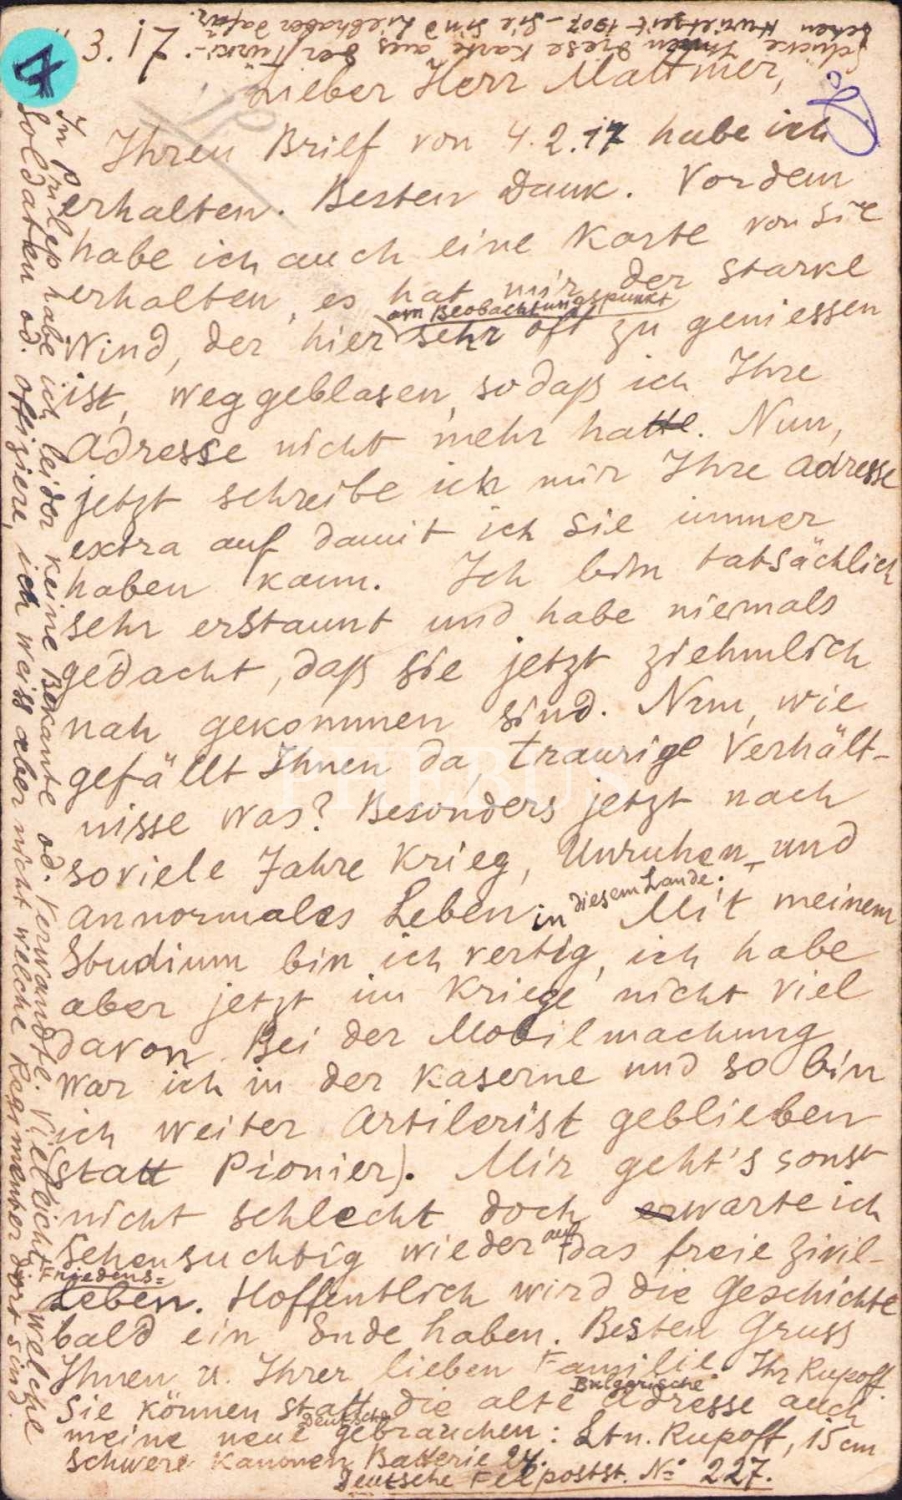 3. 17
Lieber Herr Mattmer,
Ihren Brief von 4.2.17 habe ich
erhalten. Besten Dank. Vordem
habe ich auch eine Karte von Sie
erhalten, es hat mir der starke
am Beobachtungspunkt
Wind, der hier sehr oft zu geniessen
ist, weggeblasen, sodaß ich Ihre
Adresse nicht mehr hatte. Nun,
jetzt schreibe ich mir Ihre Adresse
extra auf damit ich Sie immer
haben kann. Ich bin tatsächlich
sehr erstaunt und habe niemals
gedacht, daß Sie jetzt ziehmlich
nah gekommen sind. Nun, wie
gefällt Ihnen da, traurige Verhält-
nisse was? Besonders jetzt nach
soviele Jahre Krieg, Unruhen und
annormales Leben in diesem Lande. Mit meinem
Studium bin ich vertig, ich habe
aber jetzt im Kriege nicht viel
davon. Bei der Mobilmachung
war ich in der Kaserne und so bin
ich weiter Artilerist geblieben
(statt Pionier). Mir geht's sonst
nicht schlecht doch erwarte ich
sehensuchtig wieder auf das freie Zivil-
Friedens=
Leben. Hoffentlich wird die Geschichte
bald ein Ende haben. Besten Gruss
Ihnen u. Ihrer lieben Familie. Ihr Rupoff.
Bulgarische
Sie können statt die alte Adresse auch
deutsche
meine neue gebrauchen: Ltn. Rupoff, 15cm
Schwere Kanonen Batterie 24.
Deutsche Felpostst. № 227.
In Prilep habe ich leider keine Bekante od. Verwandte. Vielleicht welche
Soldaten od. Offiziere, ich weiss aber nicht welche Regimenter dort sind.
Schicke Ihnen diese Karte aus der Türki-
schen Kriegszeit 1907 - Sie sind Liebhaber dafür.
PHEBUS